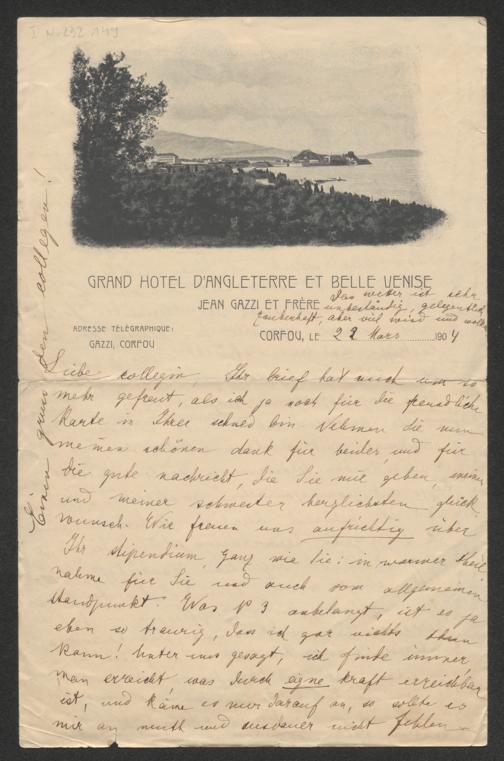 I N. 292 149
GRAND HOTEL D'ANGLETERRE ET BELLE VENISE
JEAN GAZZI ET FRÈRE
Das wetter ist sehr
unbeständig, gelegentlich
zauberhaft, aber viel wind und wolken
ADRESSE TÉLÉGRAPHIQUE:
GAZZI, CORFOU
CORFOU, LE 22 Mars 1904
Liebe collegin, Ihr brief hat mich um so
mehr gefreut, als ich ja noch für die freundliche
karte in Ihrer schuld bin. Nehmen Sie nun
meinen schönen dank für beides, und für
die gute nachricht, die Sie mir geben, meinen
und meiner schwester herzlichsten glück-
wunsch. Wir freuen uns aufrichtig über
Ihr stipendium, ganz wie Sie: in warmer theil-
nahme für Sie und auch vom allgemeinen
standpunkt. Was № 3 anbelangt, ist es ja
eben so traurig, dass ich gar nichts thun
kann! Unter uns gesagt, ich finde immer
man erreicht was durch eigne kraft erreichbar
ist, und käme es nur darauf an, so sollte es
mir an muth und ausdauer nicht fehlen.
Einen gruss den collegen!